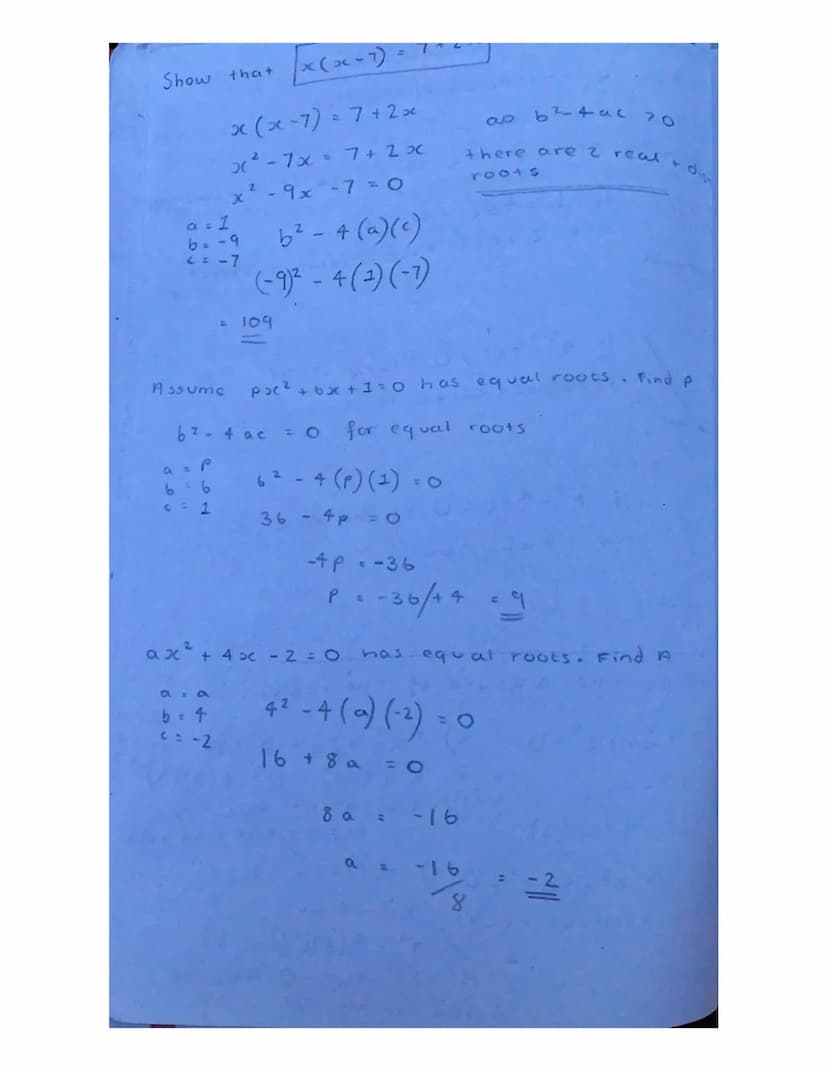 Show that x(x-7) = 7+2
x(x-7) = 7+2x
x² - 7x = 7+ 2x
x² - 9x - 7 = 0
as b²-4ac >0
there are 2 real +
roots
a = 1
b = -9
c = -7
b² - 4(a)(c)
(-9)² - 4(1)(-7)
= 109
Assume px² + 6x + 1 = 0 has equal roots. Find p
b² - 4ac = 0 for equal roots
a = p
b = 6
c = 1
6² - 4(p)(1) = 0
36 - 4p = 0
-4p = -36
p = -36/+4 = 9
ax² + 4x - 2 = 0 has equal roots. Find A
a = a
b = 4
c = -2
4² - 4(a)(-2) = 0
16 + 8a = 0
8a = -16
a = -16/8 = -2